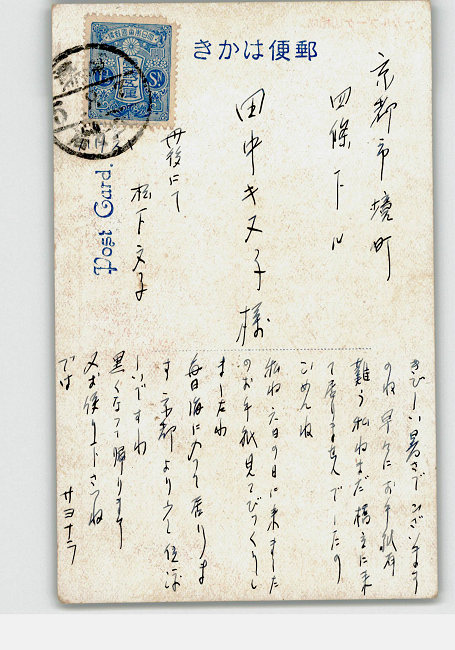 きかは便郵
Post Card.
京都市堺町
四條下ル
田中キヌ子様
丹後にて
松下文子
きびしい暑さでございます
のね 早々にお手紙有
難う 私ねまだ橋立に来
て居りませんでしたの
ごめんね
私ね 六日の日に来ました
のお手紙見てびっくりし
ましたわ
毎日海に入って居りま
す 京都より
いいですわ
黒くなって帰ります
又お便り下さいね
では
サヨナラ